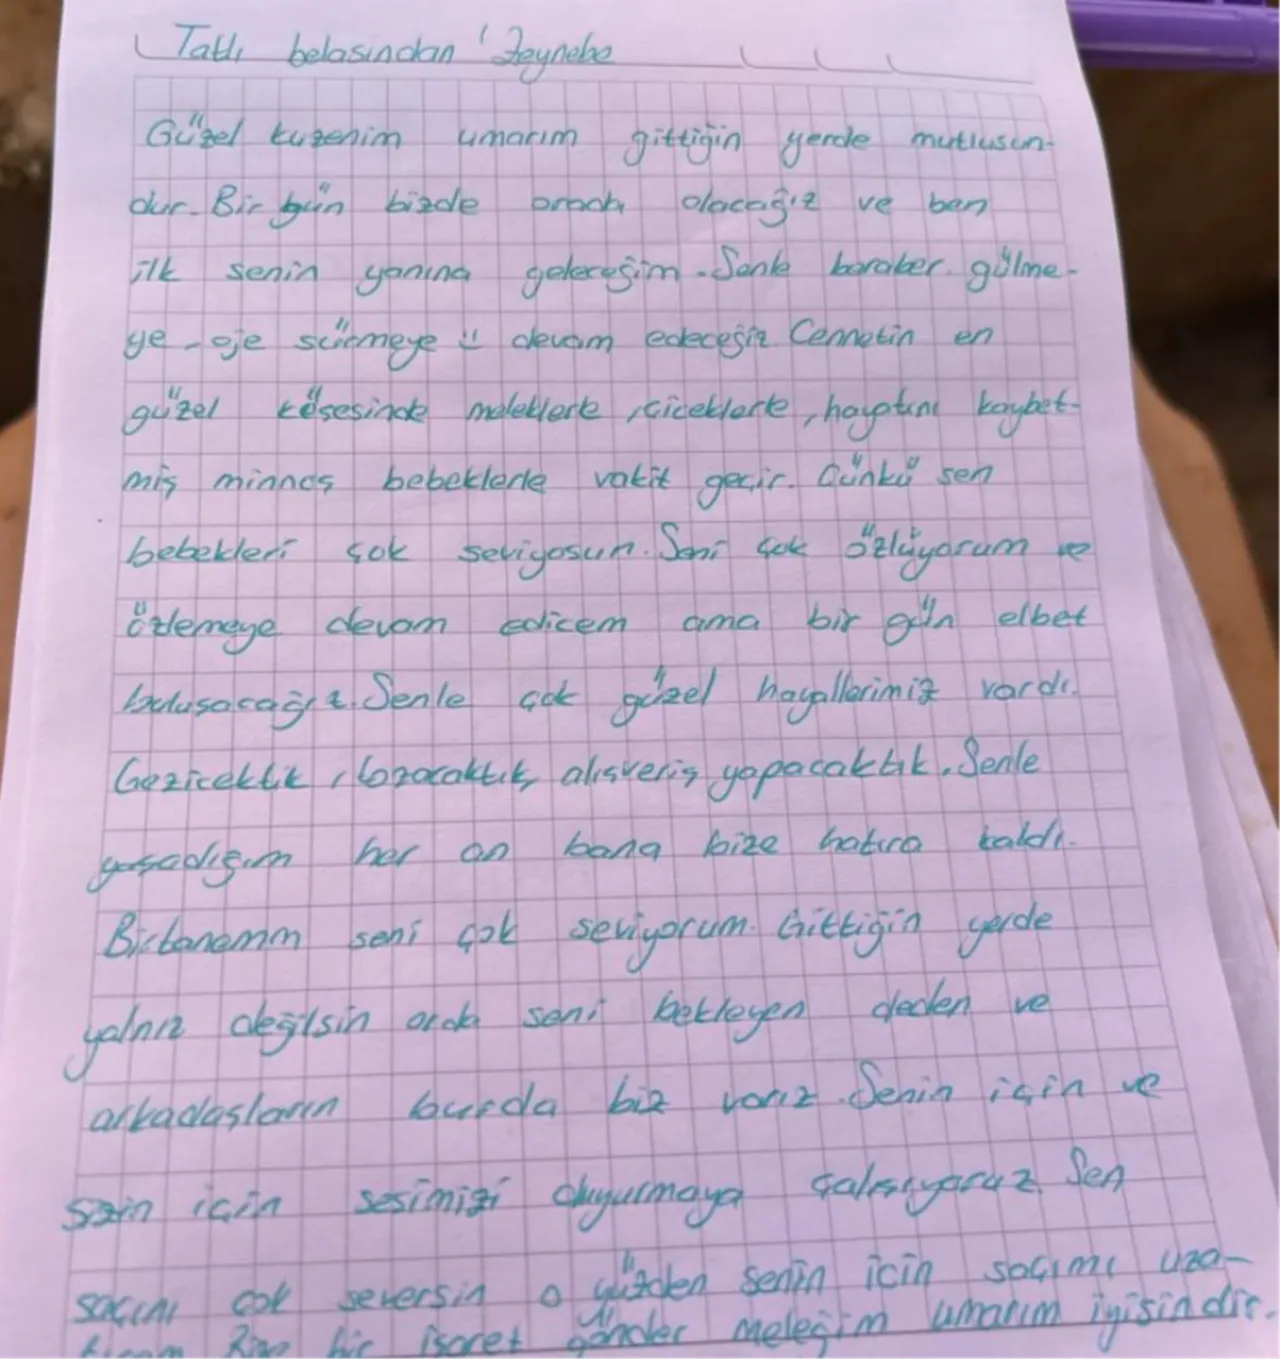 Tatlı belasından Zeynebe
Güzel kuzenim umarım gittiğin yerde mutlusun-
dur. Bir gün bizde orada olacağız ve ben
ilk senin yanına geleceğim. Senle beraber gülme-
ye, oje sürmeye devam edeceğiz Cennetin en
güzel köşesinde meleklerle, çiceklerle, hayatını kaybet-
miş minnoş bebeklerle vakit geçir. Çünkü sen
bebekleri çok seviyosun. Seni çok özlüyorum ve
özlemeye devam edicem ama bir gün elbet
bulusacağız. Senle çok güzel hayallerimiz vardı.
Gezicektik, kozacaktık, alısveriş yapacaktık. Senle
yaşadığım her an bana bize hatıra kaldı.
Birtanemm seni çok seviyorum. Gittiğin yerde
yalnız değilsin orda seni bekleyen deden ve
arkadaşların burda biz varız. Senin için ve
sizin için sesimizi duyurmaya çalısıyoruz. Sen
saçını çok seversin o yüzden senin icin saçımı uza-
bir işaret gönder meleğim umarım iyisindir.